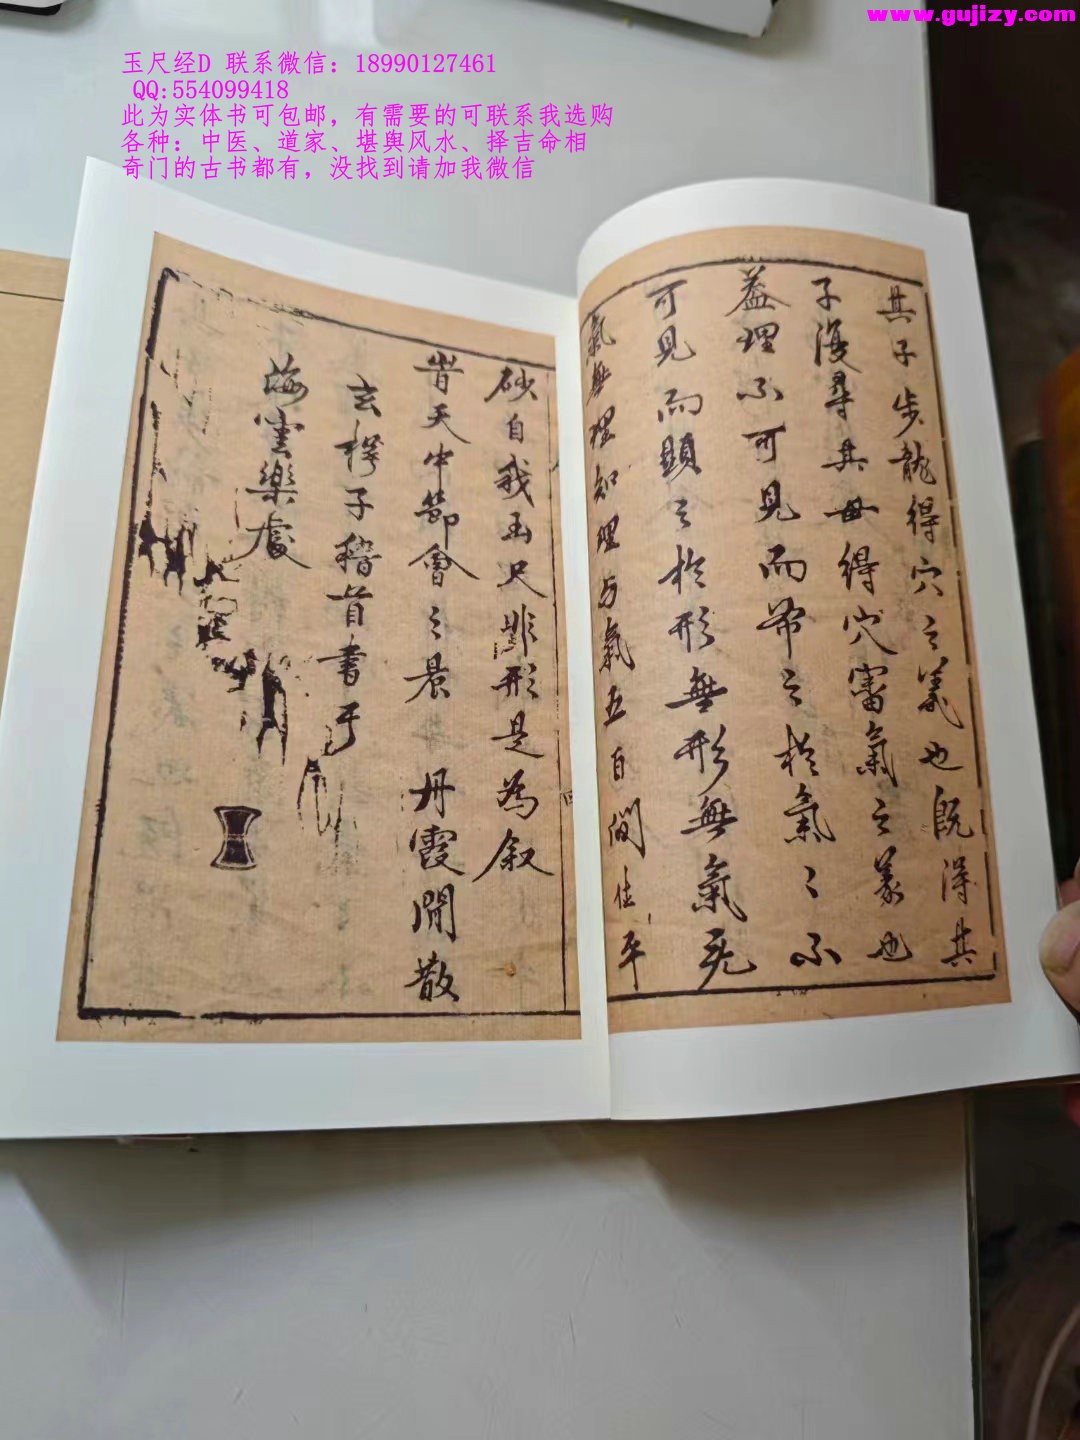 www.gujizy.com
玉尺经D 联系微信：18990127461
QQ:554099418
此为实体书可包邮，有需要的可联系我选购
各种：中医、道家、堪舆风水、择吉命相
奇门的古书都有，没找到请加我微信
其子步龍得穴之義也既得其
子復尋其母得穴審氣之義也
蓋理不可見而常之於氣〻不
可見而顯之於形無形無氣死
氣無理知理与氣五自間住平
砂自我玉尺非形是為叙
昔天中節會之晨丹霞閒散
玄樗子稽首書于
海雲樂處